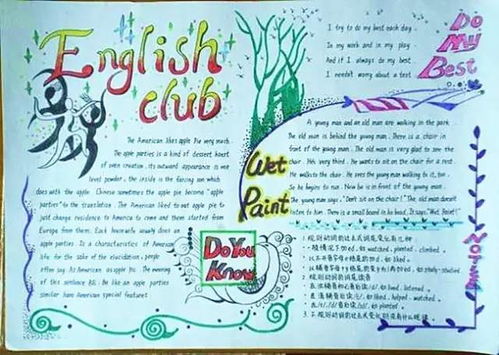 English
club
The American likes apple Pie very much.
The apple parties is a kind of dessert heart
of oven creation. its outward appearance is one
level powder, the inside is the farcing son which
does with the apple. Chinese sometimes the apple pie become "apple
parties" to the translation. The American liked to eat apple pie to
just change residence to America to come and them started from
Europa from them. Each housewife usually does an
apple parties. Is a characteristics of American
life for the sake of the elucidation, people
often say: As American as apple pie. The meaning
of this sentence BE: Be like an apple parties
similar have American special feature!
Do You
Know
I try to do my best each day.
In my work and in my play.
And if I always do my best.
I needn't worry about a test.
Do
My
Best
Wet
Paint
A young man and an old man are walking in the park.
The old man is behind the young man. There is a chair in
front of the young man. The old man is very glad to see the
chair. He's very tired. He wants to sit on the chair for a rest
He walks to the chair. He sees the young man walking to it, too.
So he begins to run. Now he is in front of the young man.
The young man says: "Don't sit on the chair!" The old man doesn't
listen to him. There is a small board in his hand. It says, "Wet Paint!"
1. 规则动词的过去式词尾变化有三种
一般情况下加ed, 如 watched, planted, climbed.
以不发音字母e结尾的加d. 如 liked.
以辅音字母+y结尾的变y为i再加ed. 如 study-studied